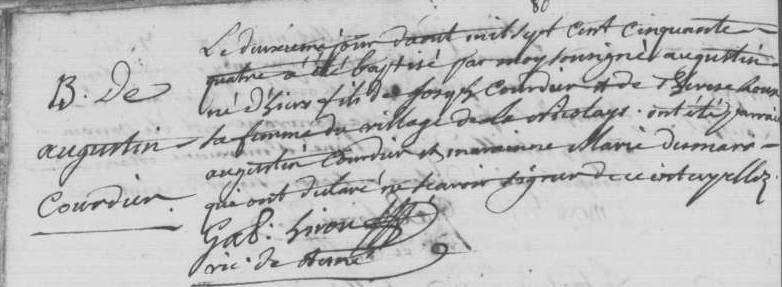 80
Le deuxieme jour daout mil sept cent cinquante
B. De
quatre a été baptisé par moy sousigné augustin
né d'hier fils de Joseph Courdier et de Therese
augustin
sa femme du village de la Nicolays. ont été parrain
Courdier.
augustin Courdier et marainne Marie dumarés
que ont declaré ne scavoir signer de ce interpellez.
Gab. Giroux
vic. de